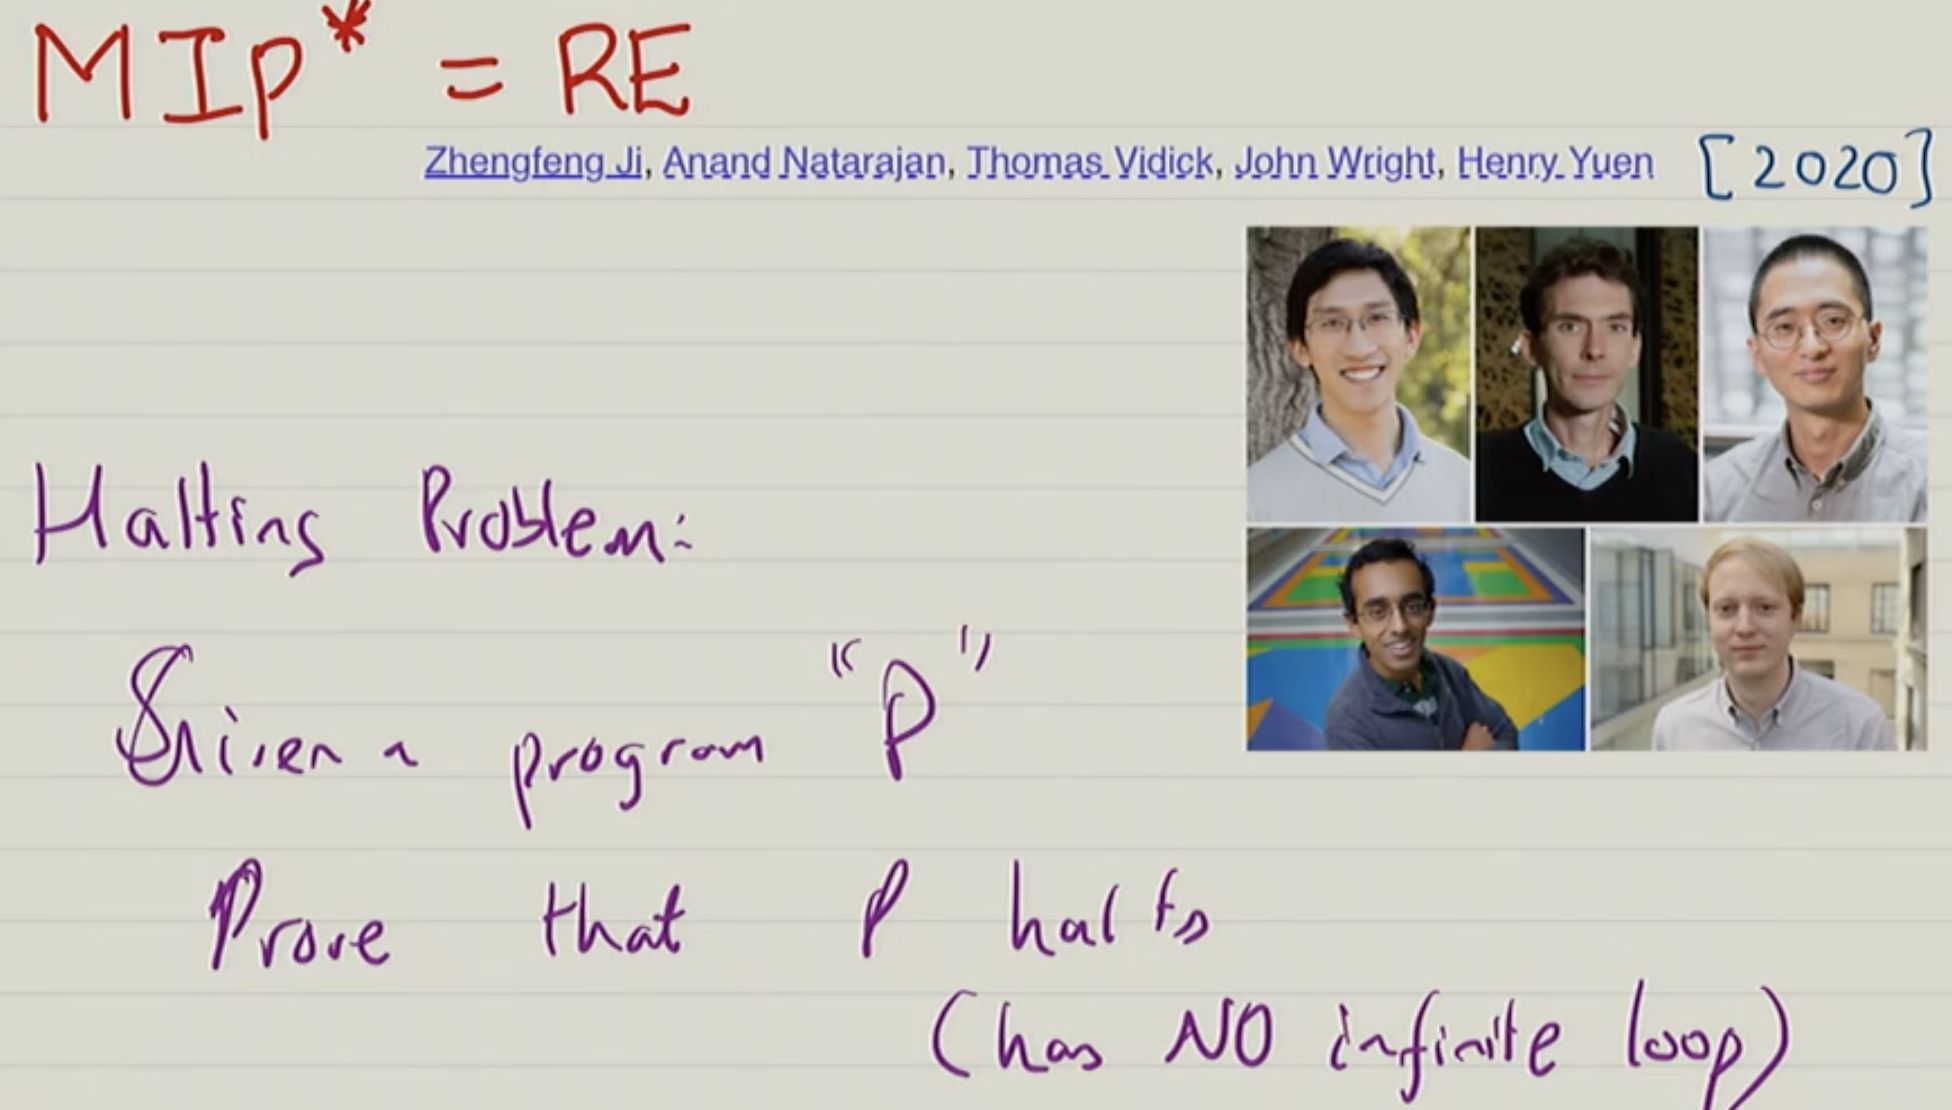 MIP* = RE
Zhengfeng Ji, Anand Natarajan, Thomas Vidick, John Wright, Henry Yuen [2020]
Halting Problem:
Given a program "P"
Prove that P halts
(has NO infinite loop)